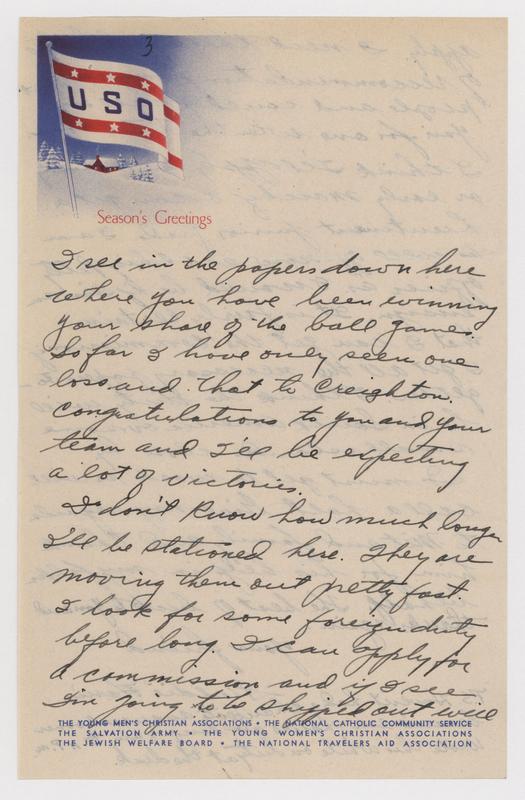 3
USO
Season's Greetings
I see in the papers down here
where you have been winning
your share of the ball games.
So far I have only seen one
loss and that to Creighton.
Congratulations to you and your
team and I'll be expecting
a lot of victories.
I don't know how much longer
I'll be stationed here. They are
moving them out pretty fast.
I look for some foreign duty
before long. I can apply for
a commission and if I see
I'm going to be shipped out will
THE YOUNG MEN'S CHRISTIAN ASSOCIATIONS • THE NATIONAL CATHOLIC COMMUNITY SERVICE
THE SALVATION ARMY • THE YOUNG WOMEN'S CHRISTIAN ASSOCIATIONS
THE JEWISH WELFARE BOARD • THE NATIONAL TRAVELERS AID ASSOCIATION